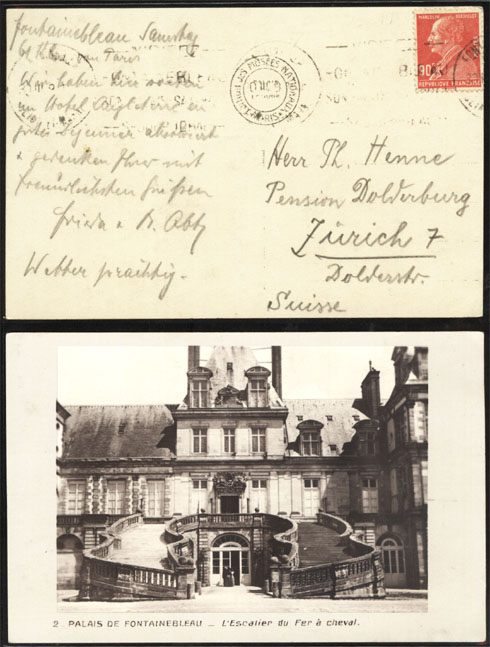 Fontainebleau Samstag
61 Klm. von Paris
Wir haben hier soeben
im Hotel Angleterre ein
gutes Dejeuner absolviert
& gedenken Ihrer mit
freundlichsten Grüssen
Frieda & B. Abt
Wetter prächtig.
MARCELIN BERTHELOT
90
REPUBLIQUE FRANÇAISE
MUSEES NATIONAUX
PARIS
Herr Th. Henne
Pension Dolderburg
Zürich 7
Dolderstr.
Suisse
2 PALAIS DE FONTAINEBLEAU _ L'Escalier du Fer à cheval.